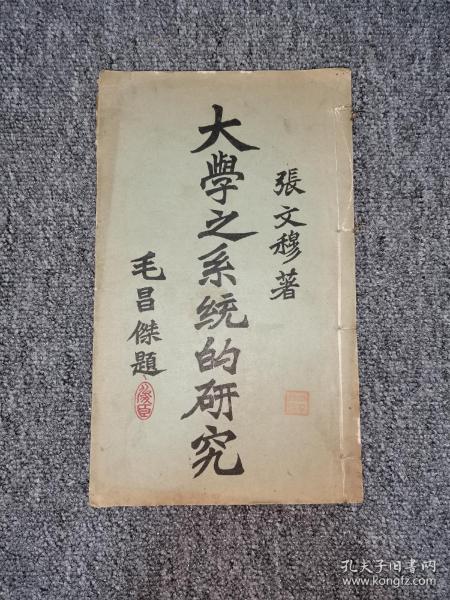 張文穆著
大學之系統的研究
毛昌傑題
孔夫子旧书网
www.kongfz.com